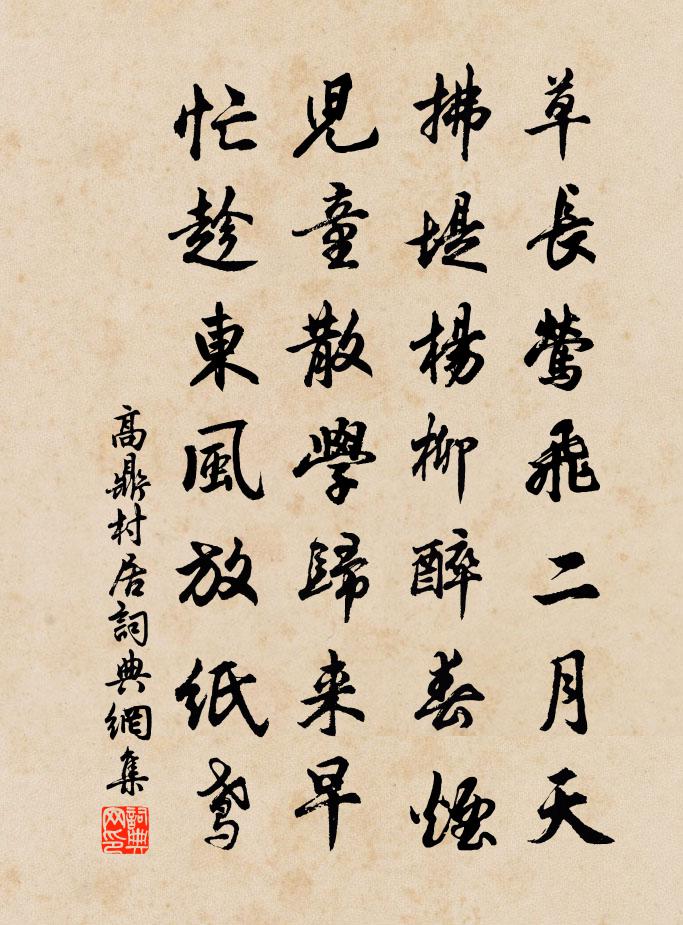 草長鶯飛二月天
拂堤楊柳醉春煙
兒童散學歸来早
忙趁東風放紙鳶
高鼎村居詞典網集
詞典网印